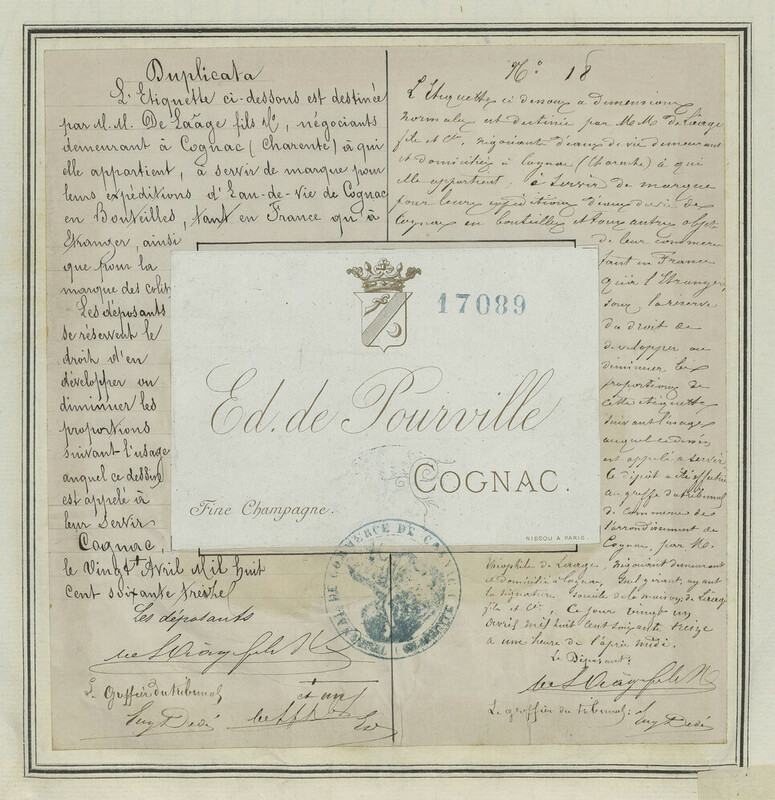 Duplicata
L'Etiquette ci-dessous est destinée
par M.M. De Laâge fils & Cie, négociants
demeurant à Cognac (Charente) à qui
elle appartient, à servir de marque pour
leurs expéditions d'Eau-de-Vie de Cognac
en Bouteilles, tant en France qu'à
Etranger, ainsi
que pour la
marque des colis
Les déposants
se réservent le
droit d'en
développer ou
diminuer les
proportions
suivant l'usage
auquel ce dessin
est appelé à
leur servir
Cognac,
le Vingt Avril Mil huit
Cent soixante treize
Les déposants
Le Greffier du tribunal
No 18
L'Etiquette ci dessous a dimensions
normales est destinée par MM de Laage
fils et Cie, négociants d'eaux de vie demeurant
et domiciliés à Cognac (Charente) à qui
elle appartient, à servir de marque
pour leurs expéditions d'eaux de vie de
Cognac en bouteilles et tous autres objets
de leur commerce
tant en France
qu'à l'Etranger,
sous la réserve
du droit de
développer ou
diminuer les
proportions de
cette étiquette
suivant l'usage
auquel ce dessin
est appelé à servir
Ce dépôt a été effectué
au greffe du tribunal
de commerce de
l'arrondissement de
Cognac, par M.
Théophile de Laage, négociant demeurant
et domicilié à Cognac, ayant
la signature sociale de la maison de Laage
fils et Cie, Ce jour vingt un
avril mil huit cent soixante treize
a une heure de l'après midi.
Le Déposant:
Le greffier du tribunal:
17089
Ed. de Pourville
COGNAC.
Fine Champagne.
NISSOU A PARIS.
TRIBUNAL DE COMMERCE DE COGNAC
(CHARENTE)